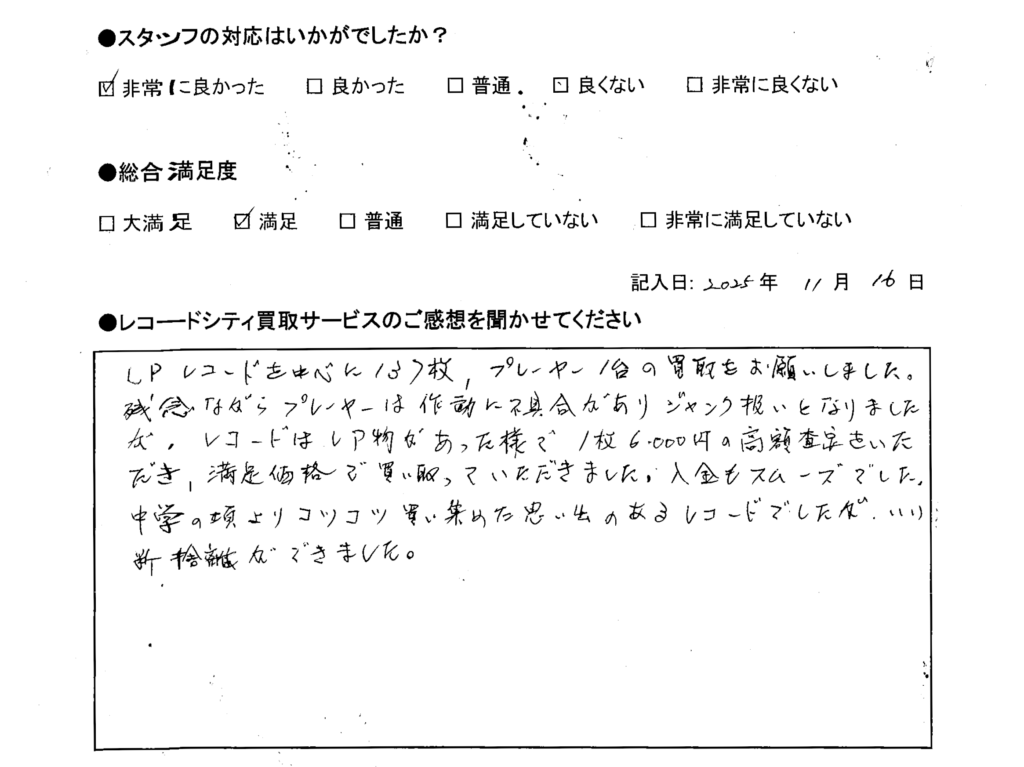 ●スタッフの対応はいかがでしたか？
☑ 非常に良かった □ 良かった □ 普通 □ 良くない □ 非常に良くない
●総合満足度
□ 大満足 ☑ 満足 □ 普通 □ 満足していない □ 非常に満足していない
記入日: 2025 年 11 月 16 日
●レコードシティ買取サービスのご感想を聞かせてください
LPレコードを中心に137枚, プレーヤー1台の買取をお願いしました。
残念ながらプレーヤーは作動に不具合がありジャンク扱いとなりました
が, レコードはレア物があった様で1枚6.000円の高額査定をいた
だき, 満足価格で買い取っていただきました。入金もスムーズでした。
中学の頃よりコツコツ買い集めた思い出のあるレコードでしたが、いい
断捨離ができました。